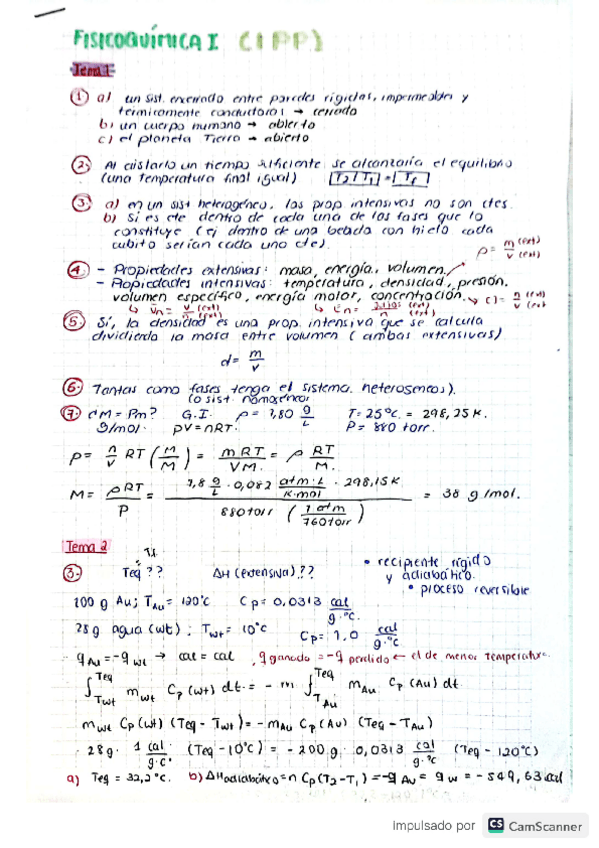 FISICOQUÍMICA I (1PP)
Tema 1
① a) un sist. encerrado entre paredes rígidas, impermeables y
térmicamente conductoras → cerrado
b) un cuerpo humano → abierto
c) el planeta Tierra → abierto
② Al aislarlo un tiempo suficiente se alcanzaría el equilibrio
(una temperatura final igual) T2/T1 = Tf
③ a) en un sist heterogéneo, las prop. intensivas no son ctes.
b) Si es cte dentro de cada una de las fases que lo
constituye (ej dentro de una bebida con hielo cada
cubito serían cada uno cte).
ρ = m (ext) / v (ext)
④ - Propiedades extensivas: masa, energía, volumen.
- Propiedades intensivas: temperatura, densidad, presión,
volumen específico, energía molar, concentración. → C) = n (ext) / v (ext
⑤ Sí, la densidad es una prop. intensiva que se calcula
dividiendo la masa entre volumen (ambas extensivas)
d = m/v
⑥ Tantas como fases tenga el sistema. heterogéneos).
(o sist. homogéneo
⑦ ¿M = Pm? G.I. ρ = 1,80 g/L T = 25°C. = 298,25 K.
g/mol. PV = nRT. P = 880 torr.
P = n/v RT (M/M) = mRT/VM. = ρ RT/M.
M = ρRT/P = 1,8 g/L · 0,082 atm·L/K·mol · 298,15K / 880 torr (1 atm/760 torr) = 38 g/mol.
Tema 2
③ Teq?? ΔH (extensiva)?? • recipiente rígido
y adiabático.
• proceso reversible
200 g Au; TAu = 120°C Cp = 0,0313 cal/g·°C.
28 g agua (wt); Twt = 10°C Cp = 1,0 cal/g·°C
qAu = -qwt → cal = cal, q ganado = -q perdido ← el de menor temperatura.
∫Twt Teq mwt Cp (wt) dt = - m ∫TAu Teq mAu Cp (Au) dt
mwt Cp (wt) (Teq - Twt) = - mAu Cp (Au) (Teq - TAu)
28g. 1 cal/g·C° (Teq - 10°C) = - 200 g. 0,0313 cal/g°C (Teq - 120°C)
a) Teq = 32,2°C. b) ΔHadiabático = n Cp (T2 - T1) = -qAu = qw = - 549,63 cal
Impulsado por CS CamScanner